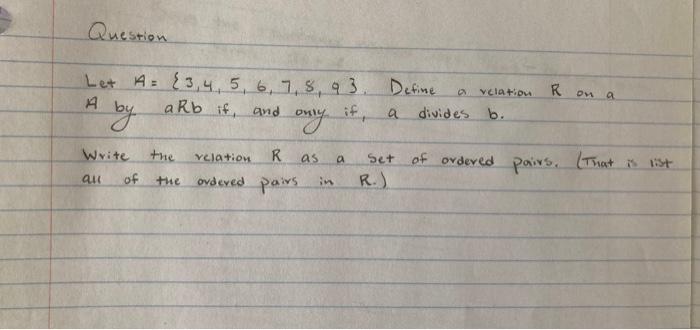 Question
Let A = {3, 4, 5, 6, 7, 8, 9}. Define a relation R on a
A by aRb if, and only if, a divides b.
Write the relation R as a set of ordered pairs. (That is list
all of the ordered pairs in R.)